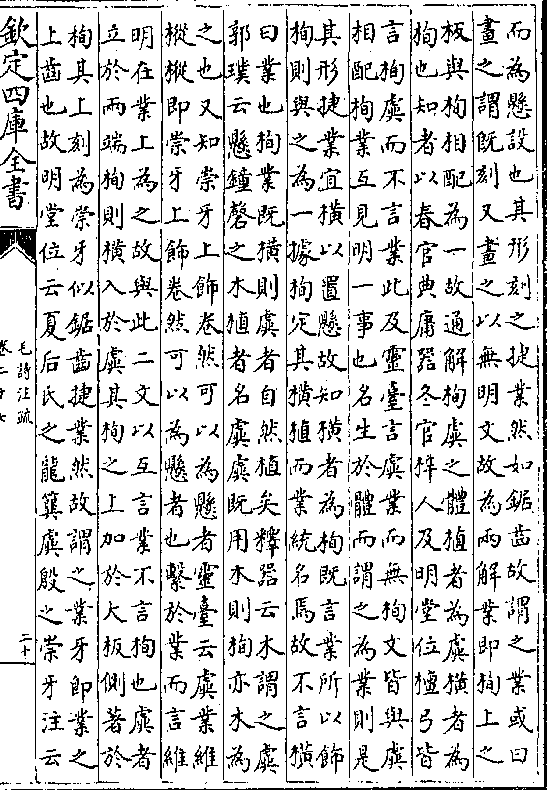 而為懸設也其形刻之捷業然如鋸齒故謂之業或曰
畫之謂既刻又畫之以無明文故為兩解業即栒上之
板與栒相配為一故通解栒虡之體植者為虡橫者為
栒也知者以春官典庸器冬官梓人及明堂位檀弓皆
言栒虡而不言業此及靈臺言虡業而無栒文皆與虡
相配栒業互見明一事也名生於體而謂之為業則是
其形捷業宜橫以置懸故知橫者為栒既言業所以飾
栒則與之為一據栒定其橫植而業統名焉故不言橫
曰業也栒業既橫則虡者自然植矣釋器云木謂之虡
郭璞云懸鐘磬之木植者名虡虡既用木則栒亦木為
之也又知崇牙上飾卷然可以為懸者靈臺云虡業維
樅樅即崇牙上飾卷然可以為懸者也繫於業而言維
明在業上為之故與此二文以互言業不言栒也虡者
立於兩端栒則橫入於虡其栒之上加於大板側著於
栒其上刻為崇牙似鋸齒捷業然故謂之業牙即業之
上齒也故明堂位云夏后氏之龍簨虡殷之崇牙注云
欽定四庫全書
毛詩注疏
二十